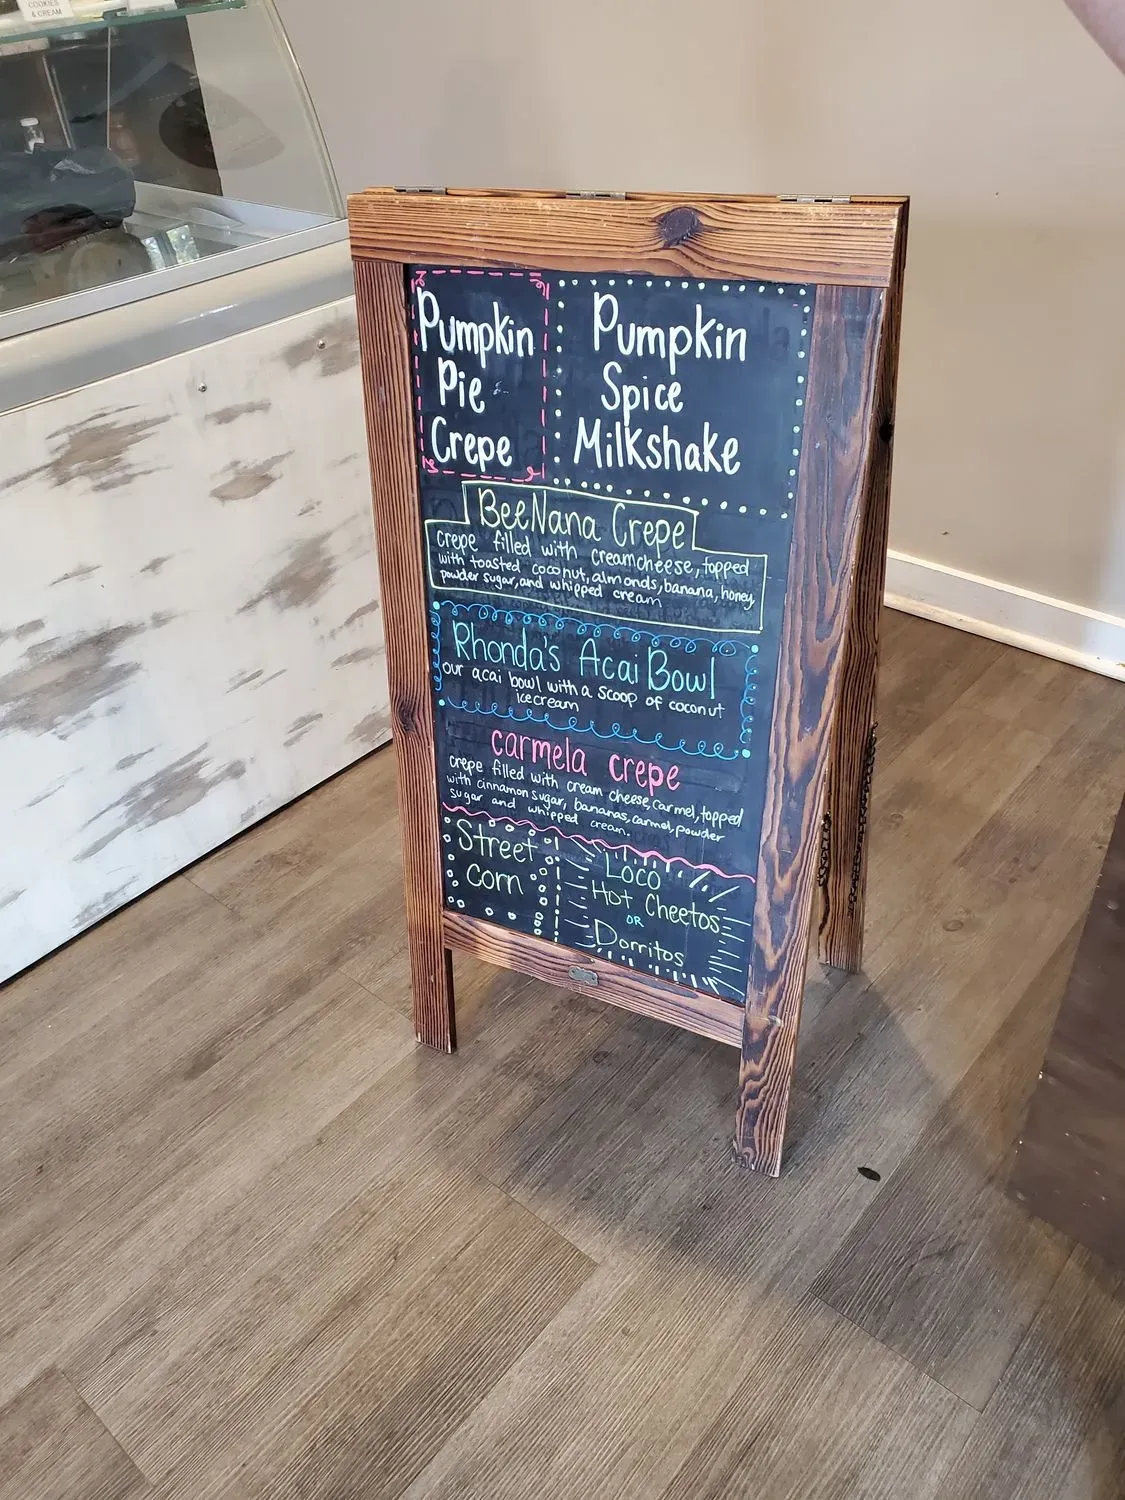 COOKIES
& CREAM
Pumpkin
Pie
Crepe
Pumpkin
Spice
Milkshake
BeeNana Crepe
crepe filled with creamcheese, topped
with toasted coconut, almonds, banana, honey,
powder sugar, and whipped cream
Rhonda's Acai Bowl
our acai bowl with a scoop of coconut
icecream
carmela crepe
crepe filled with cream cheese, carmel, topped
with cinnamon sugar, bananas, carmel, powder
sugar and whipped cream.
Street
corn
Loco
Hot Cheetos
OR
Dorritos